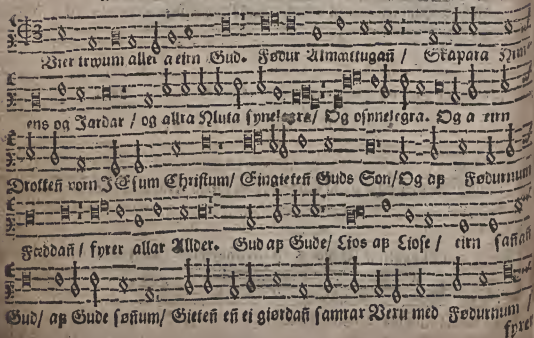 Vier truum aller a eirn Gud. Fødur Almattugañ / Skapara Him-
ens og Jardar / og allra Hluta synelegra/ Og osynelegra. Og a eirn
Drotteñ vorn JEsum Christum/ Eingieteñ Guds Son/Og aƥ Fødurnum
Fæddañ / fyrer allar Allder. Gud aƥ Gude/ Lios aƥ Liose / eirn sañañ
Gud/ aƥ Gude søñum/ Gieteñ eñ ei giørdañ samrar Veru med Fødurnum /
fyrer